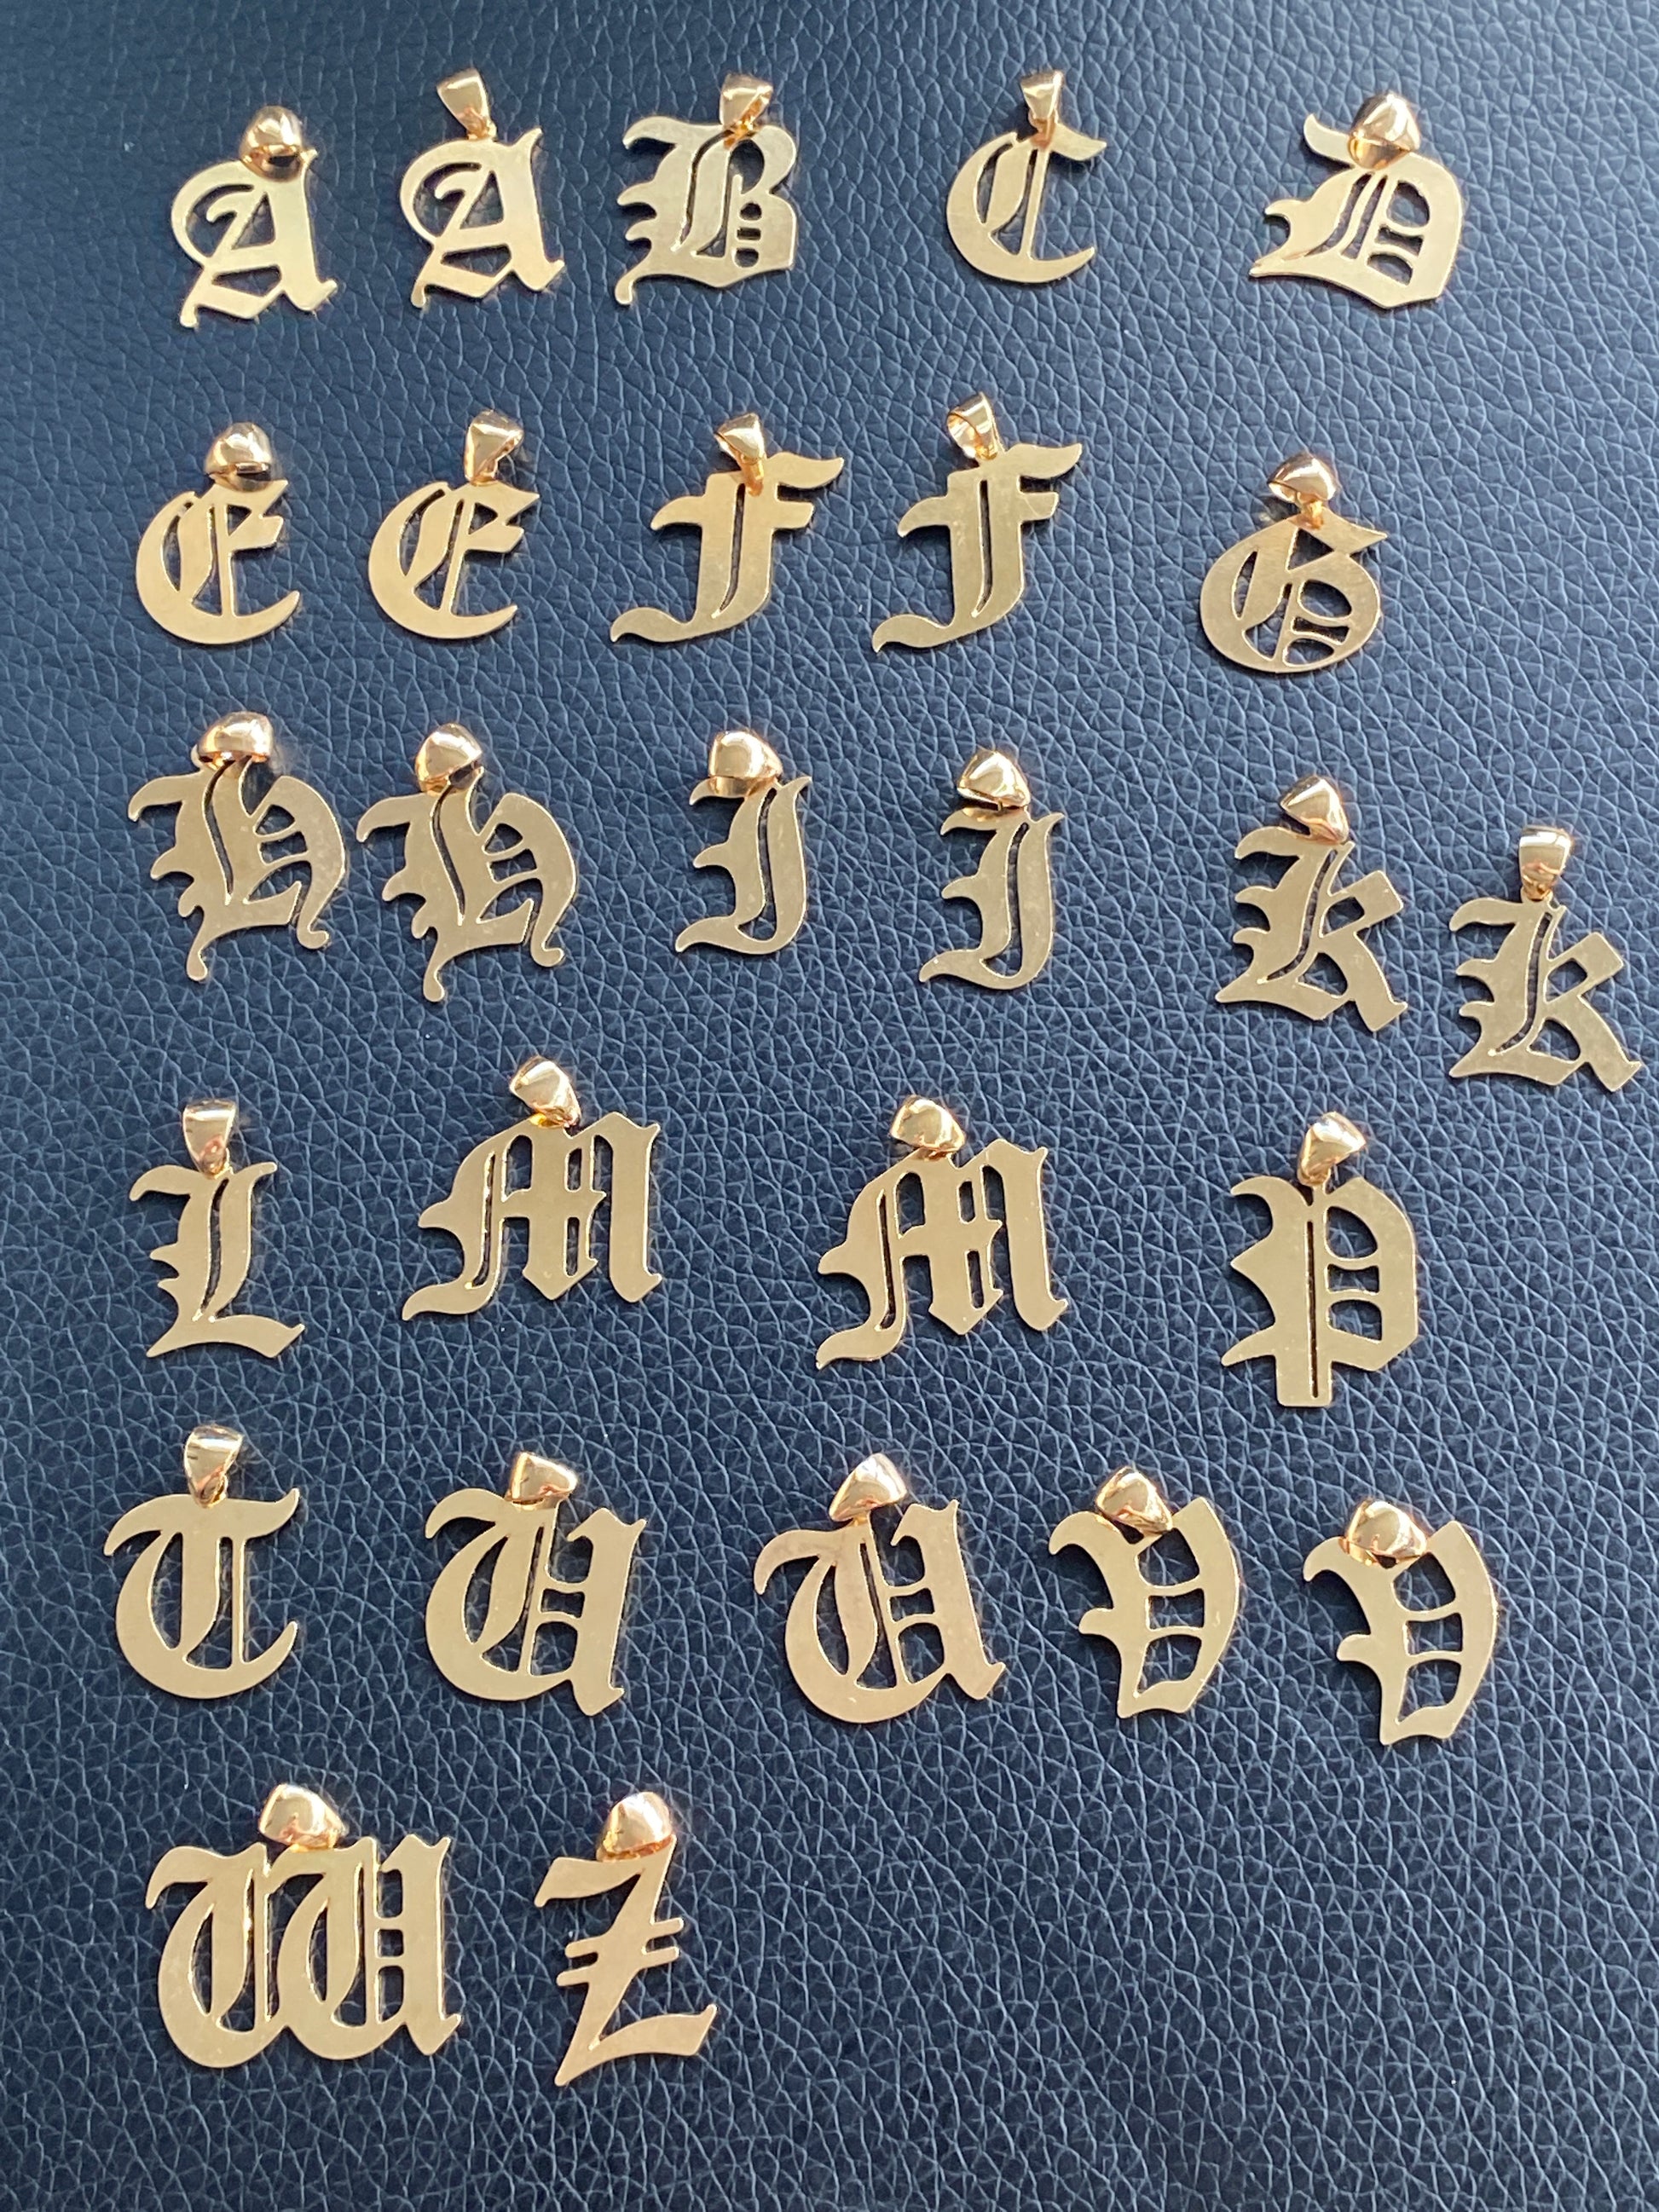 A A B C D
E E F F G
H H I I K K
L M M P
T U U V V
W Z